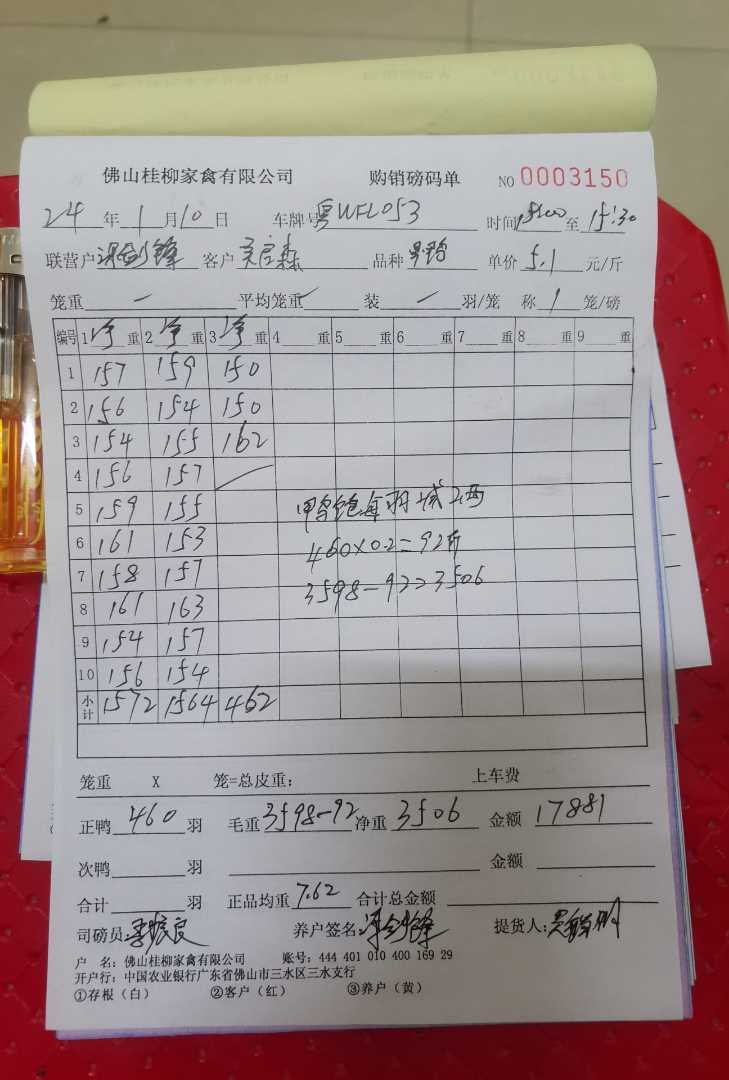 佛山桂柳家禽有限公司 购销磅码单 NO 0003150
24 年 1 月 10 日 车牌号 粤WFL053 时间 15:00 至 15:30
联营户 冯剑锋 客户 品种 单价 5.1 元/斤
笼重 — 平均笼重 装 — 羽/笼 称 1 笼/磅
编号 1 净 重 2 净 重 3 净 重 4 重 5 重 6 重 7 重 8 重 9 重
1 157 159 150
2 156 154 150
3 154 155 162
4 156 157
5 159 155
鸭 饱 每羽 减 2两
6 161 153
460×0.2=92斤
7 158 157
3598-92=3506
8 161 163
9 154 157
10 156 154
小计 1572 1564 462
笼重 X 笼=总皮重： 上车费
正鸭 460 羽 毛重 3598-92 净重 3506 金额 17881
次鸭 羽 金额
合计 羽 正品均重 7.62 合计总金额
司磅员: 养户签名: 冯剑锋 提货人:
户 名：佛山桂柳家禽有限公司 账号：444 401 010 400 169 29
开户行：中国农业银行广东省佛山市三水区三水支行
①存根（白） ②客户（红） ③养户（黄）